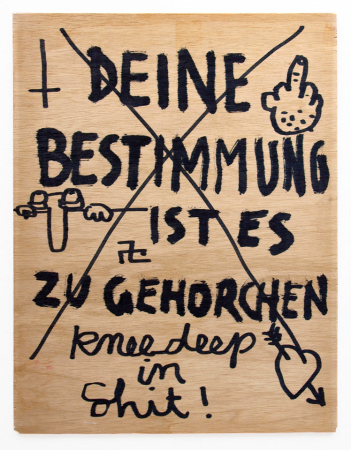 DEINE
BESTIMMUNG
IST ES
ZU GEHORCHEN
kneedeep
in
Shit!